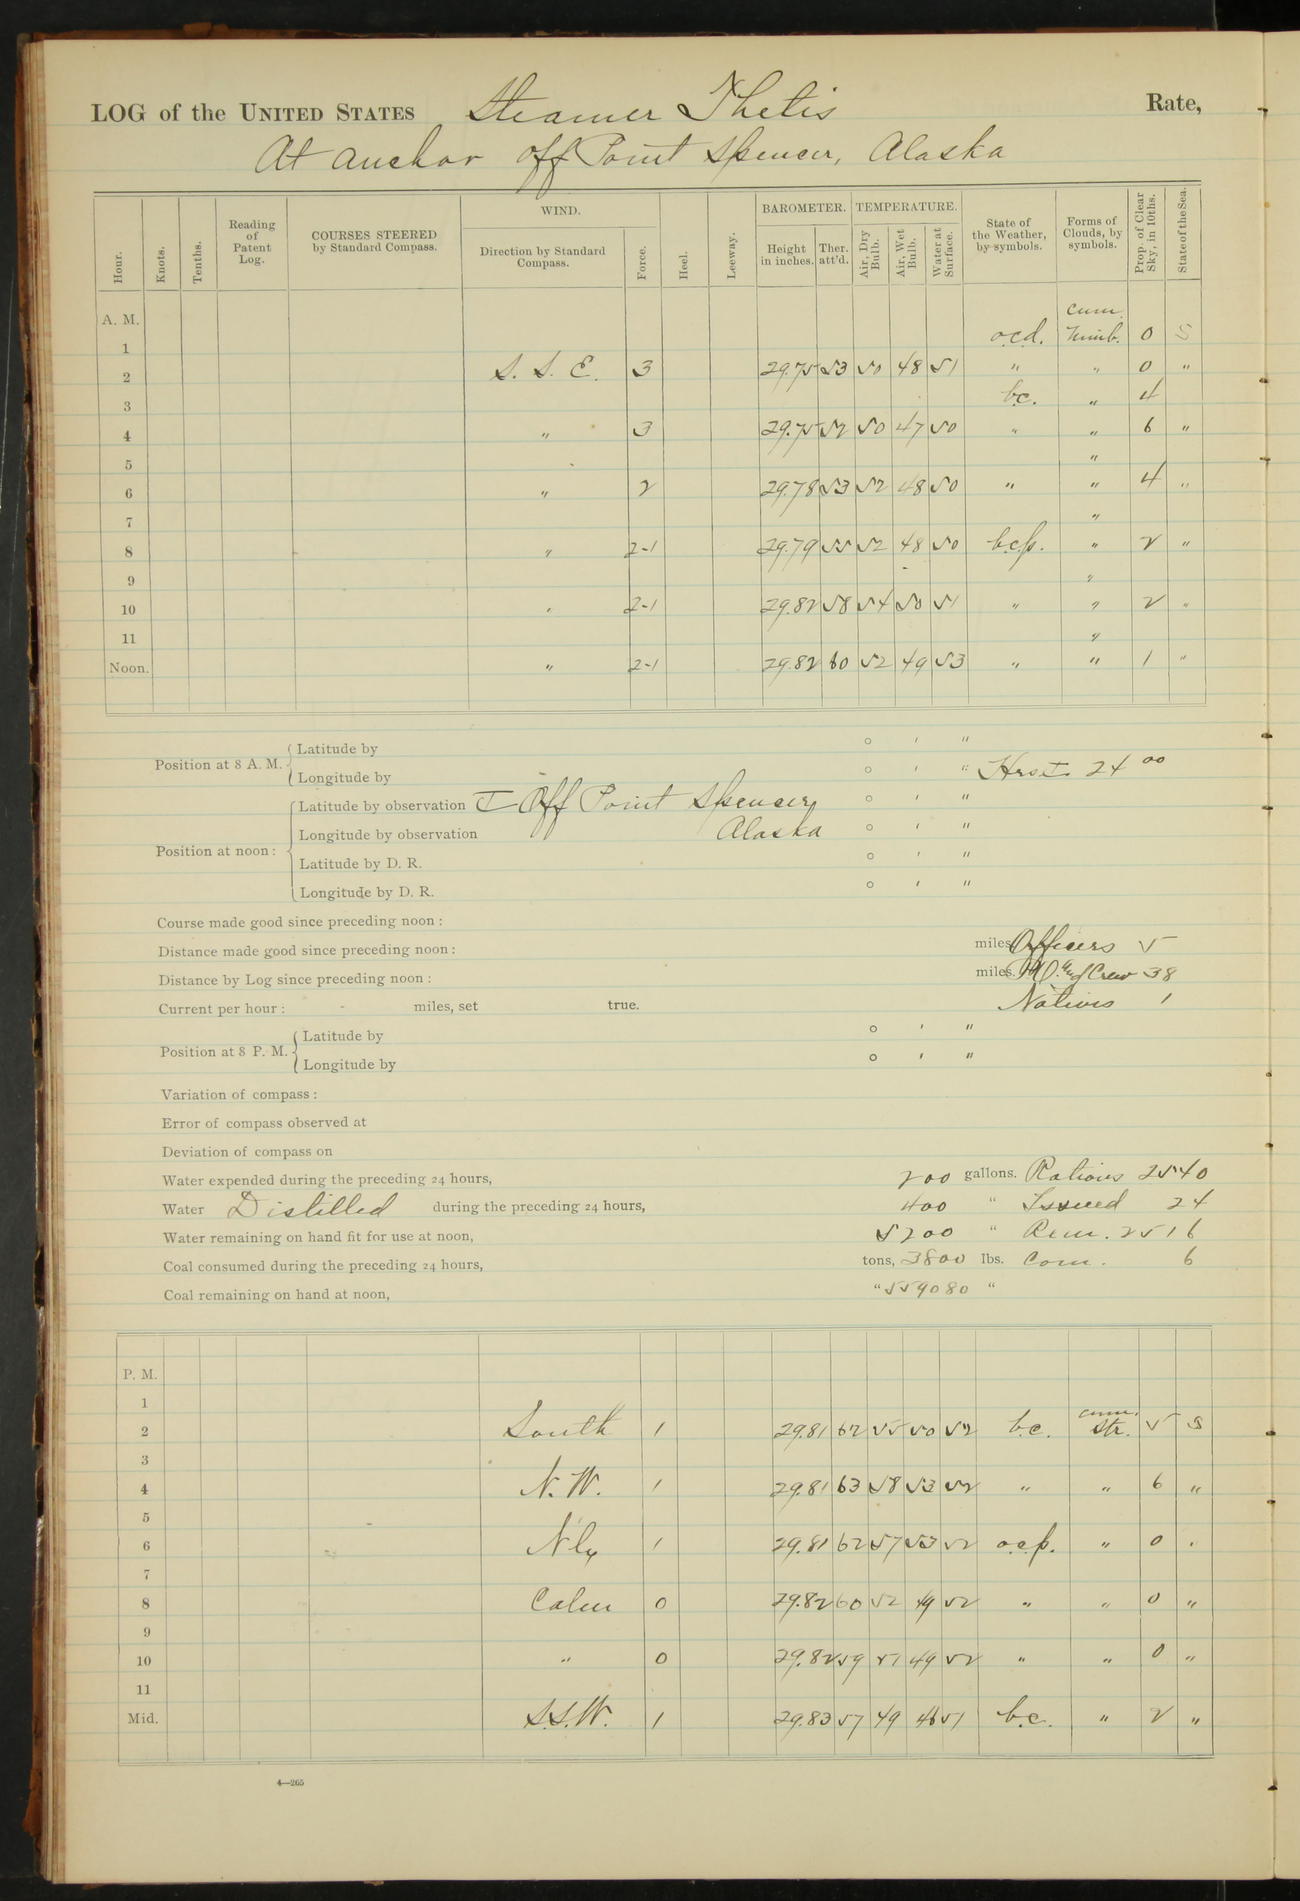 LOG of the UNITED STATES Steamer Thetis Rate,
At anchor off Point Spencer, Alaska
Hour. Knots. Tenths. Reading of Patent Log. COURSES STEERED by Standard Compass. WIND. Direction by Standard Compass. Force. Heel. Leeway. BAROMETER. Height in inches. Ther. att'd. TEMPERATURE. Air, Dry Bulb. Air, Wet Bulb. Water at Surface. State of the Weather, by symbols. Forms of Clouds, by symbols. Prop. of Clear Sky, in 10ths. State of the Sea.
A. M. cum.
1 o.c.d. Nimb. 0 S
2 S. S. E. 3 29.75 53 50 48 51 " " 0 "
3 b.c. " 4
4 " 3 29.75 52 50 47 50 " " 6 "
5 "
6 " 2 29.78 53 52 48 50 " " 4 "
7 "
8 " 2-1 29.79 55 52 48 50 b.c.p. " 2 "
9 "
10 " 2-1 29.82 58 54 50 51 " " 2 "
11 "
Noon. " 2-1 29.82 60 52 49 53 " " 1 "
Position at 8 A. M. Latitude by ° ′ ″
Longitude by ° ′ ″ Hrs 24 00
Position at noon: Latitude by observation Off Point Spencer, ° ′ ″
Longitude by observation Alaska ° ′ ″
Latitude by D. R. ° ′ ″
Longitude by D. R. ° ′ ″
Course made good since preceding noon:
Distance made good since preceding noon: miles. Officers 5
Distance by Log since preceding noon: miles. and Crew 38
Current per hour: miles, set true. Natives 1
Position at 8 P. M. Latitude by ° ′ ″
Longitude by ° ′ ″
Variation of compass:
Error of compass observed at
Deviation of compass on
Water expended during the preceding 24 hours, 200 gallons. Rations 2540
Water Distilled during the preceding 24 hours, 400 " Issued 24
Water remaining on hand fit for use at noon, 5200 " Rem. 2516
Coal consumed during the preceding 24 hours, tons, 3800 lbs. Com. 6
Coal remaining on hand at noon, " 559080 "
P. M.
1 cum.
2 South 1 29.81 62 55 50 52 b.c. Str. 5 S
3
4 N. W. 1 29.81 63 58 53 52 " " 6 "
5
6 N'ly 1 29.81 62 57 53 52 o.c.p. " 0 "
7
8 Calm 0 29.82 60 52 49 52 " " 0 "
9
10 " 0 29.82 59 51 49 52 " " 0 "
11
Mid. S.S.W. 1 29.83 57 49 46 51 b.c. " 2 "
4—265